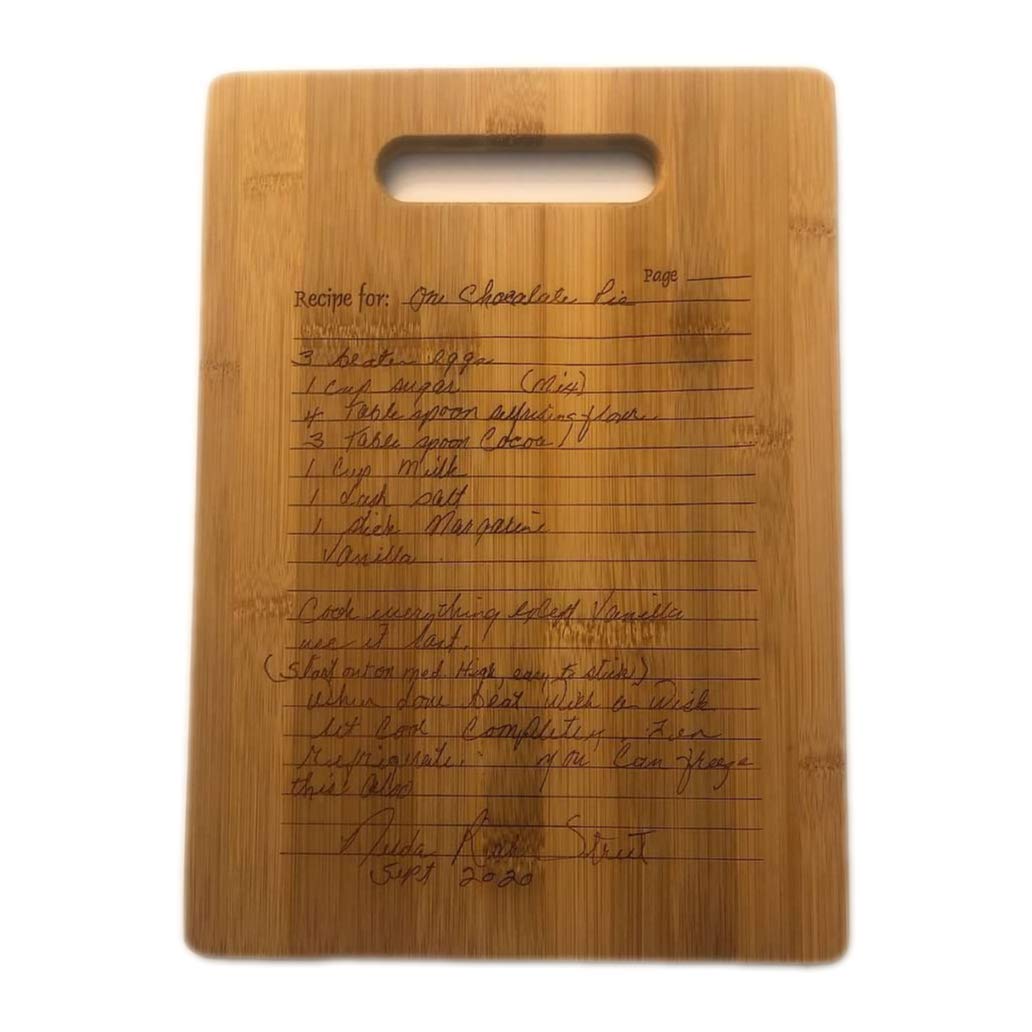 Page
Recipe for: One Chocolate Pie
3 beaten eggs
1 cup sugar (Mix)
4 Table spoon selfrising flour
3 Table spoon Cocoa
1 Cup Milk
1 dash salt
1 stick Margarine
Vanilla
Cook everything Vanilla
use it last.
(Start out on med. High, easy to stick)
When done beat with a Wisk
let Cool Completely, then
Refrigerate. you Can freeze
this also
Street
Sept 2020